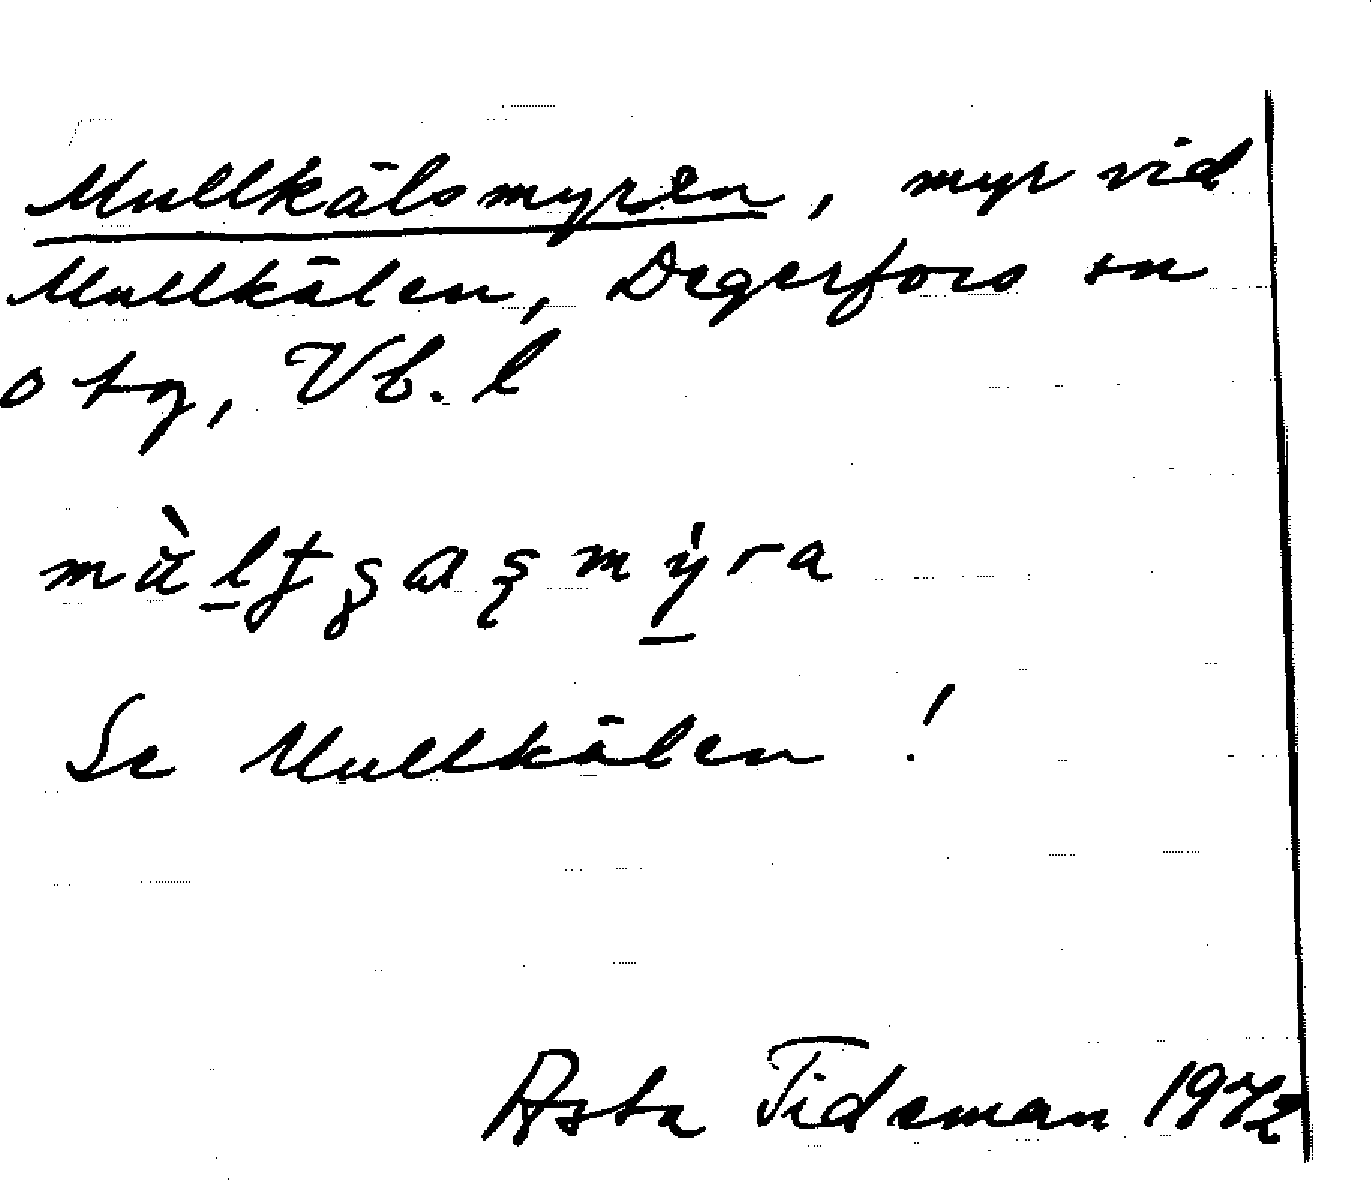 Mullkälsmyren, myr vid
Mullkälen, Degerfors sn
o tg, Vb. l
Se Mullkälen!
Asta Tideman 1972